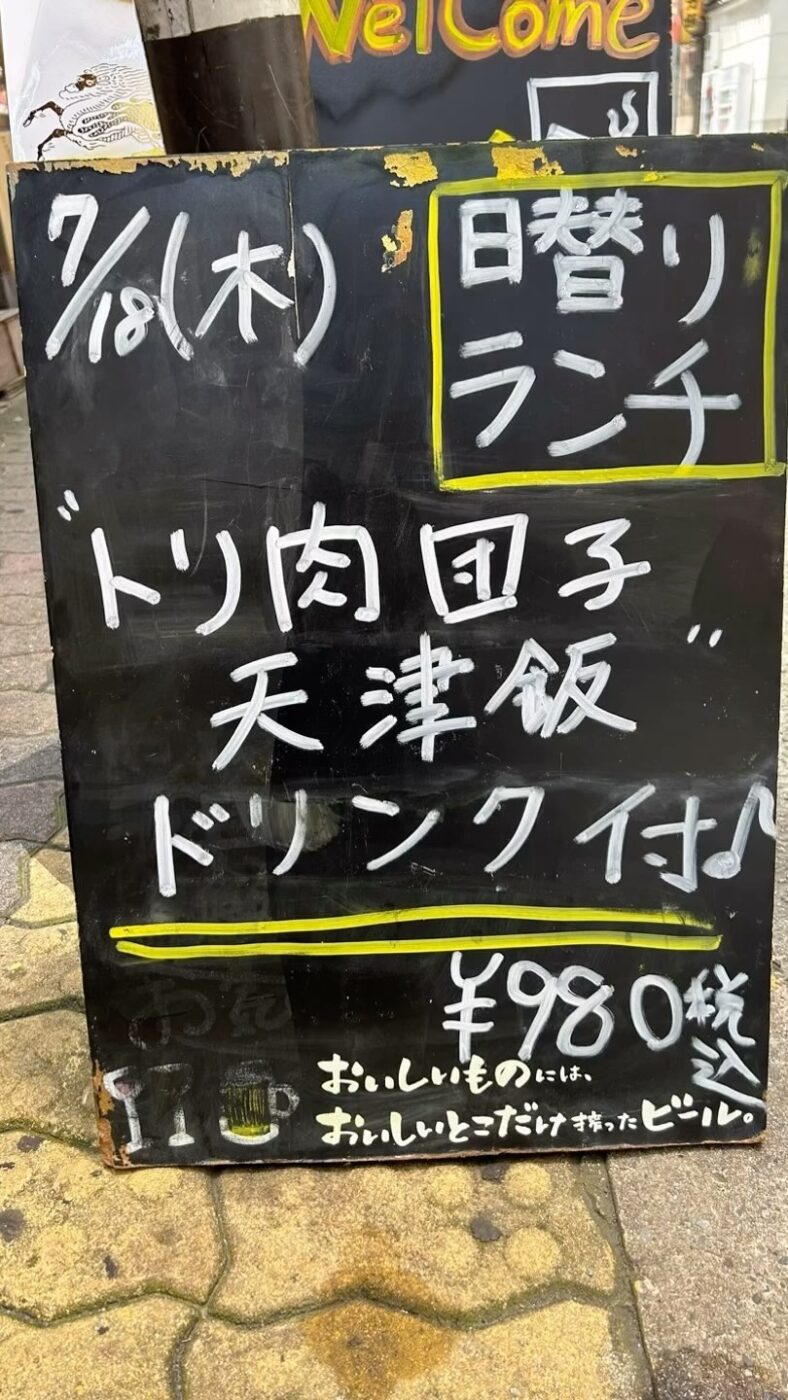 Welcome
7/18(木)
日替り
ランチ
"トリ肉団子
天津飯"
ドリンク付♪
¥980税込
おいしいものには、
おいしいとこだけ搾ったビール。